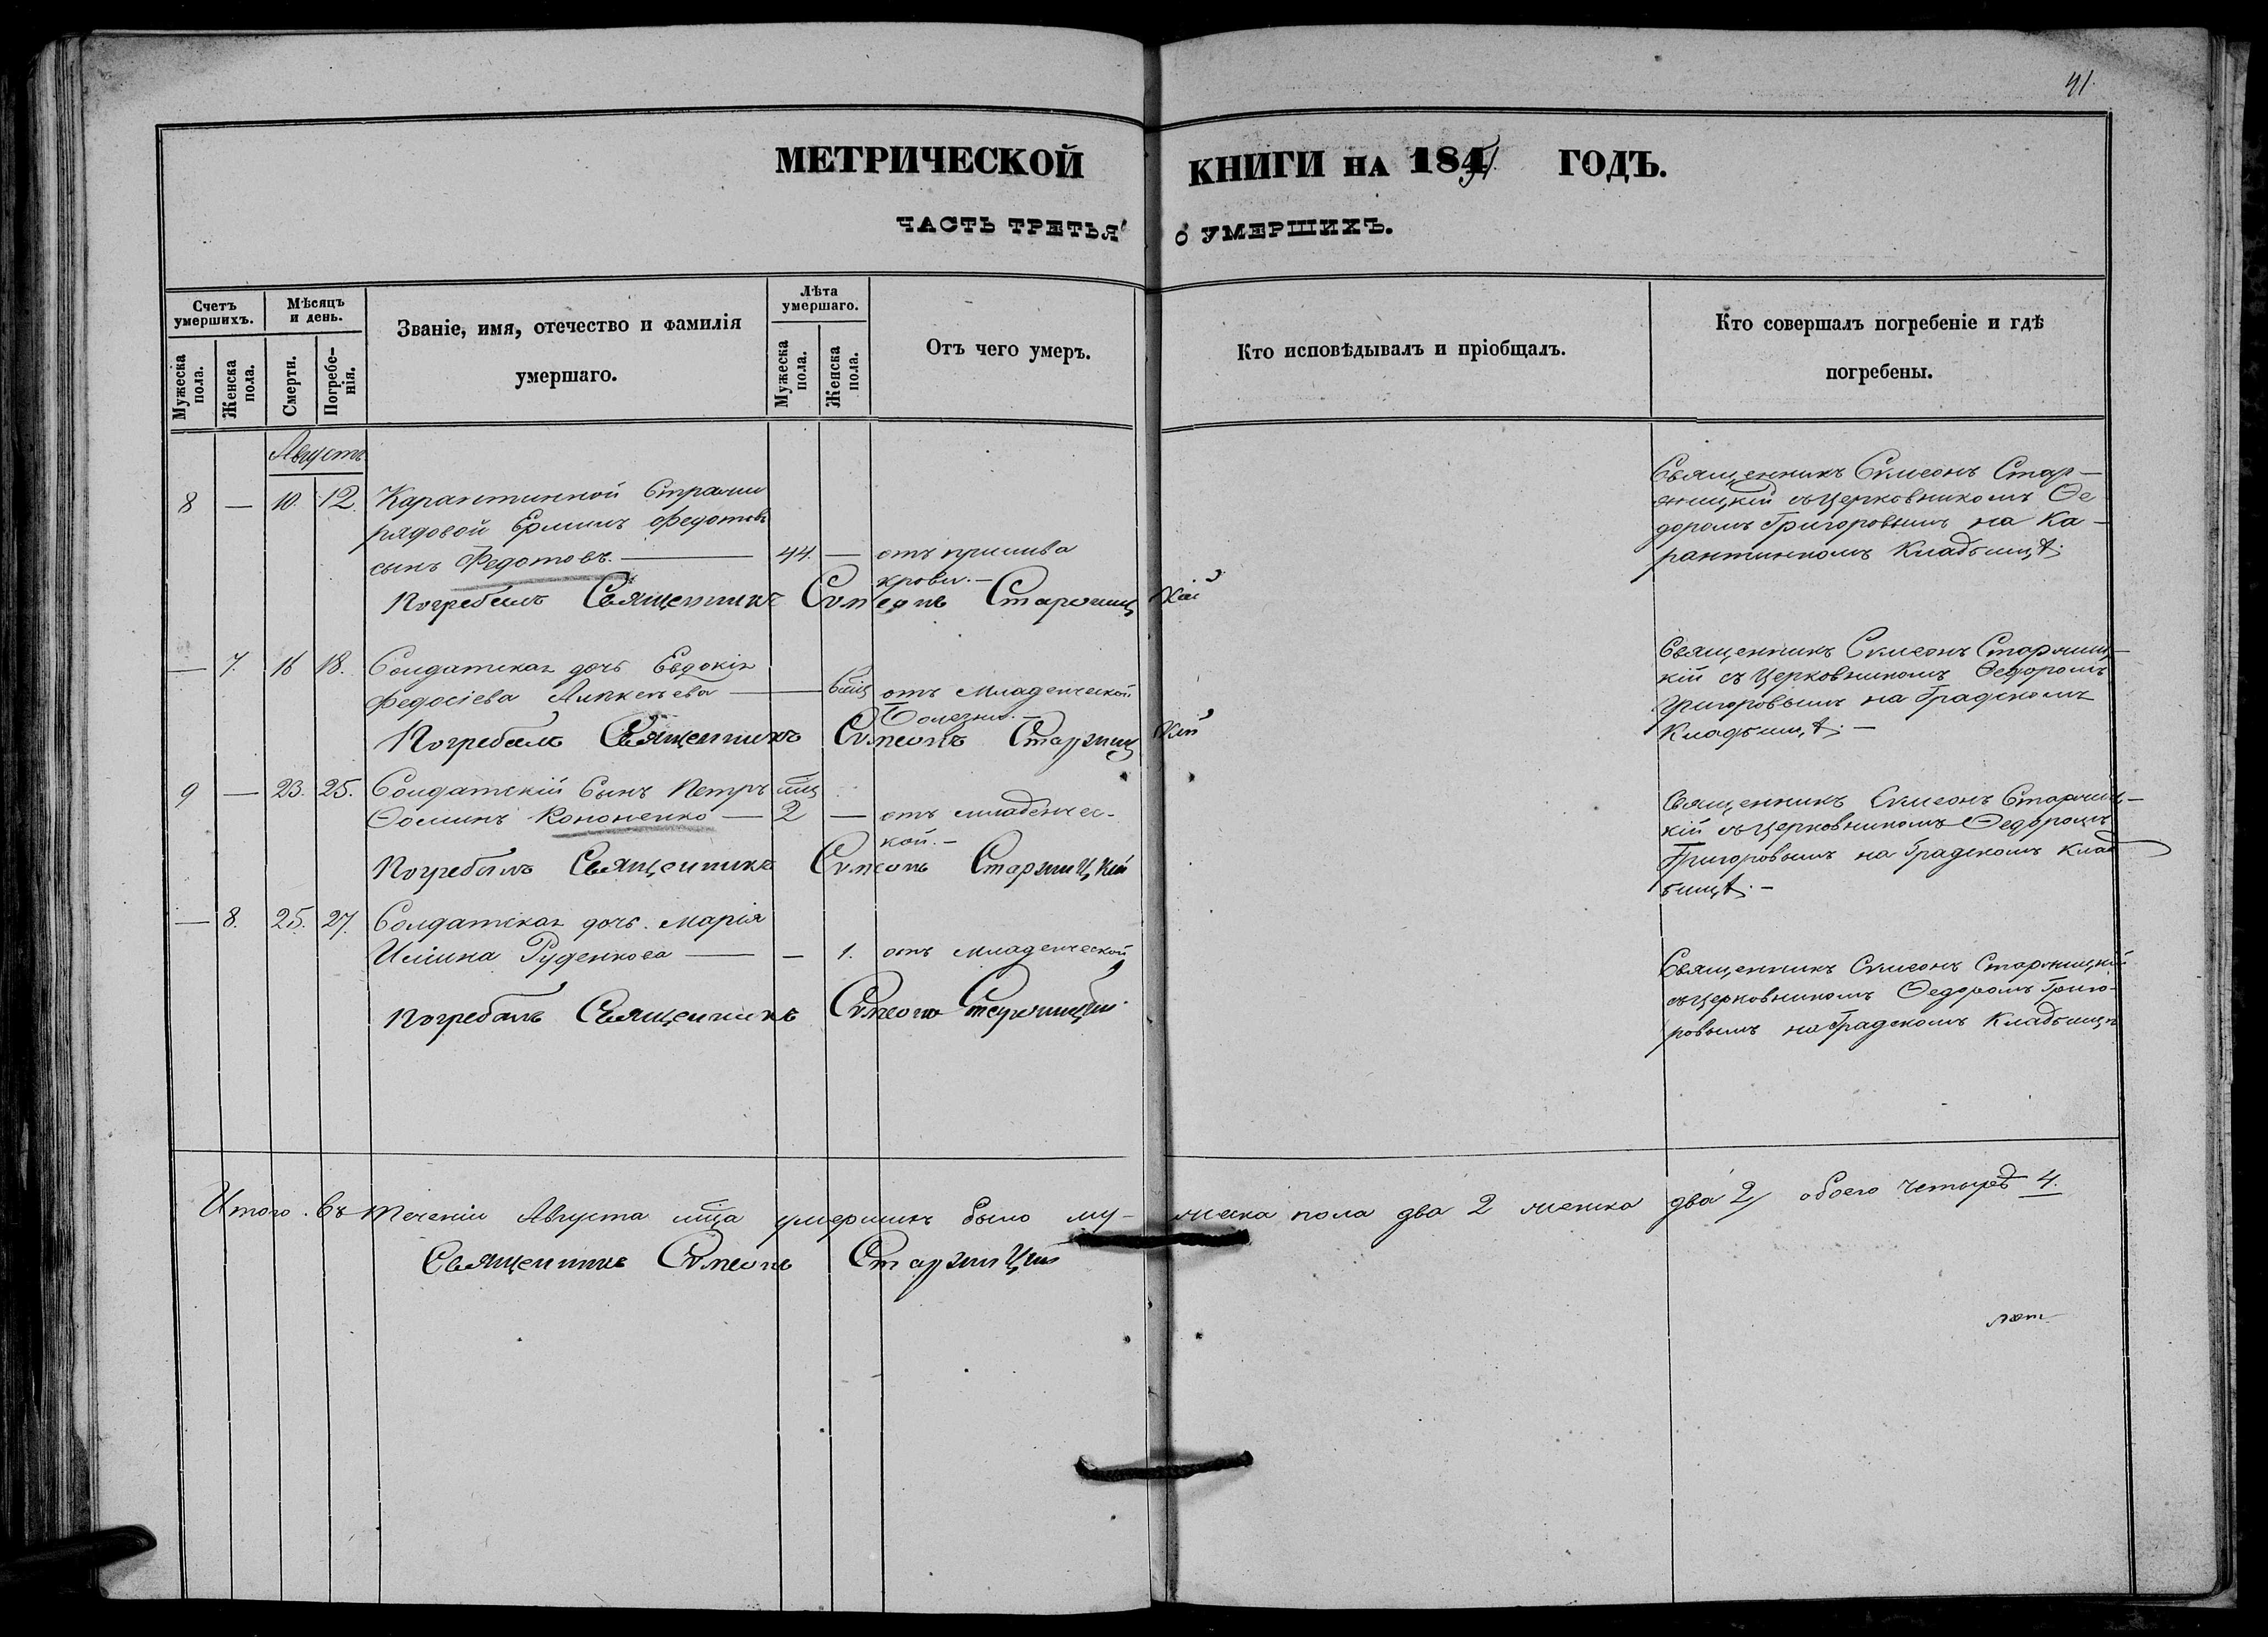 41.
МЕТРИЧЕСКОЙ КНИГИ НА 1851 ГОДЪ.
ЧАСТЬ ТРЕТЬЯ О УМЕРШИХЪ.
Счетъ умершихъ.
Мужеска пола.
Женска пола.
Мѣсяцъ и день.
Смерти.
Погребе-нія.
Званіе, имя, отечество и фамилія
умершаго.
Лѣта умершаго.
Мужеска пола.
Женска пола.
Отъ чего умеръ.
Кто исповѣдывалъ и пріобщалъ.
Кто совершалъ погребеніе и гдѣ
погребены.
Августъ
8 — 10. 12. Карантинной Стражи
рядовой Ермилъ Федотовъ
сынъ Федотовъ. — 44. — отъ прилива
крови. —
Священникъ Симеонъ Стар—
жицкій съ Церковникомъ Ѳе
доромъ Григоровымъ на Ка—
рантинномъ Кладбищѣ.
Погребалъ Священникъ Симеонъ Старжицкій
— 7. 16 18. Солдатская дочь Евдокія
Федосіева — 6 мц отъ Младенческой
Болезни. —
Священникъ Симеонъ Старжиц—
кій съ Церковникомъ Ѳедоромъ
Григоровымъ на Градскомъ
Кладбищѣ. —
Погребалъ Священникъ Симеонъ Старжицкій
9 — 23. 25. Солдатскій Сынъ Петръ мц
Ѳоминъ Кононенко — 2 — отъ младенчес-
кой. —
Священникъ Симеонъ Старжиц—
кій съ Церковникомъ Ѳедоромъ
Григоровымъ на Градскомъ Клад
бищѣ. —
Погребалъ Священникъ Симеонъ Старжицкій
— 8. 25. 27. Солдатская дочь Марія
Ильина Руденкова — — 1. отъ Младенческой
Священникъ Симеонъ Старжицкій
съ Церковникомъ Ѳедоромъ Григо-
ровымъ на Градскомъ Кладбищѣ
Погребалъ Священникъ Симеонъ Старжицкій
Итого въ теченіи Августа мца умершихъ было му-жеска пола два 2 женска два 2, обоего четыре 4.
Священникъ Симеонъ Старжицкій